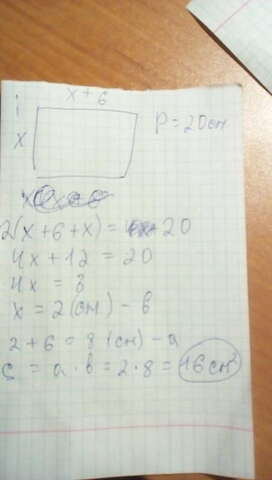 x + 6
x
P = 20см
2(x + 6 + x) = 20
4x + 12 = 20
4x = 8
x = 2 (см) - в
2 + 6 = 8 (см) - а
S = a · b = 2 · 8 = 16 см²